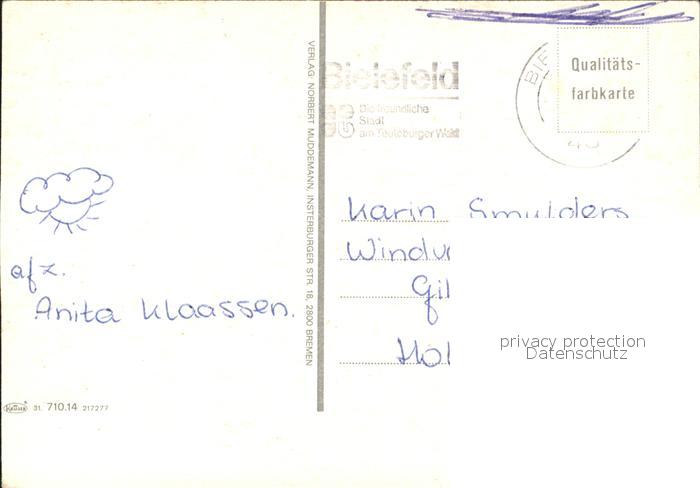 Bielefeld
Die freundliche
Stadt
am Teutoburger Wald
BIE
Qualitäts-
farbkarte
VERLAG: NORBERT MUDDEMANN, INSTERBURGER STR. 18, 2800 BREMEN
afz.
Anita Klaassen.
Karin Smulders
Windu
Gil
Hol
privacy protection
Datenschutz
KRÜGER 31. 710.14 217277